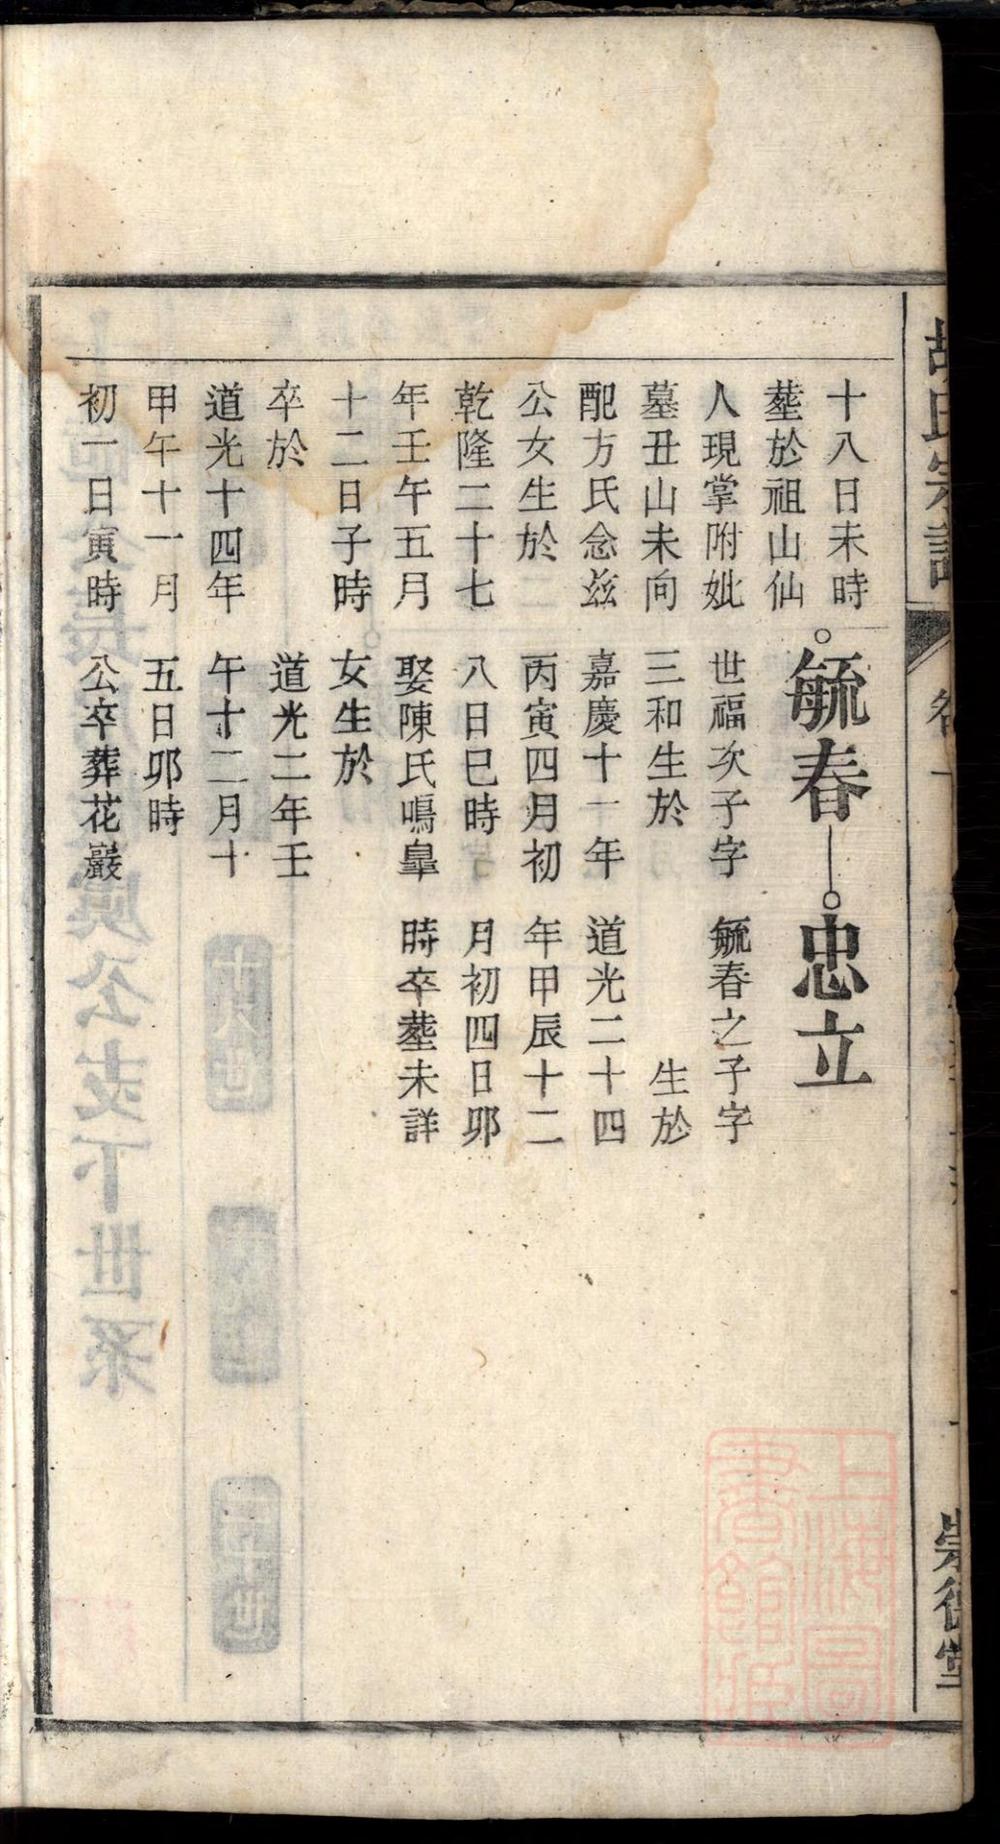 胡氏宗譜
崇德堂
十八日未時
塟於祖山仙
人現掌附妣
墓丑山未向
配方氏念兹
公女生於
乾隆二十七
年壬午五月
十二日子時
卒於
道光十四年
甲午十一月
初一日寅時
毓春
世福次子字
三和生於
嘉慶十一年
丙寅四月初
八日巳時
娶陳氏鳴臯
女生於
道光二年壬
午十二月十
五日卯時
公卒葬花巖
忠立
毓春之子字
生於
道光二十四
年甲辰十二
月初四日卯
時卒塟未詳
上海圖書館藏